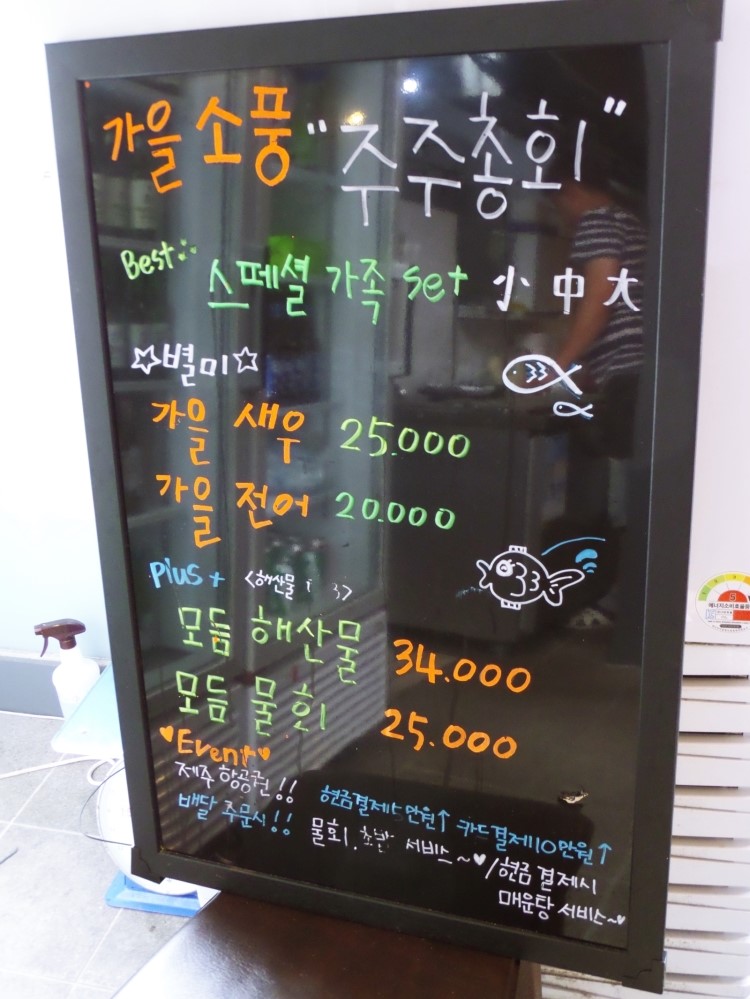 가을 소풍 "주주총회"
Best 스페셜 가족 set 小 中 大
☆별미☆
가을 새우 25.000
가을 전어 20.000
Plus+ <해산물
모듬 해산물 34.000
모듬 물회 25.000
♥Event♥
제주 항공권!! 현금결제 5만원↑ 카드결제 10만원↑
배달 주문시!! 물회. 초밥 서비스~♥/현금 결제시
매운탕 서비스~♥